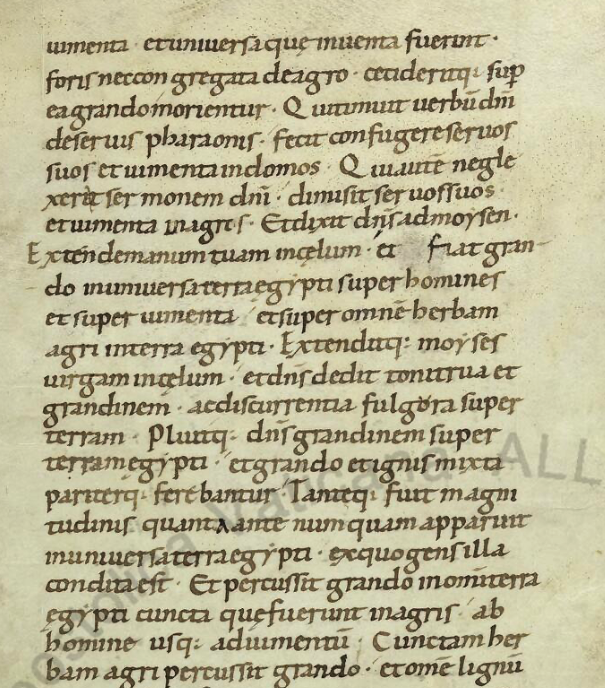 uimenta · et universa quę inventa fuerint ·
foris nec congregata de agro · cecideritq; sup
ea grando morientur · Qui timuit verbū dnī
de servis pharaonis · fecit confugere servos
suos et iumenta in domos · Qui autē negle
xerit sermonem dnī · dimisit servos suos
et iumenta in agris · Et dixit dn̄s ad moysen ·
Extende manum tuam in cęlum · et fiat gran-
do in universa terra egypti super homines
et super iumenta · et super omnē herbam
agri in terra egypti · Extenditq; moyses
virgam in cęlum · et dn̄s dedit tonitrua et
grandinem · ac discurrentia fulgura super
terram · Pluitq; dn̄s grandinem super
terram egypti · et grando et ignis mixta
pariterq; ferebantur · Tanteq; fuit magni
tudinis quanta ante numquam apparuit
in universa terra egypti · ex quo gens illa
condita est · Et percussit grando in omī terra
egypti cuncta quę fuerunt in agris · ab
homine usq; ad iumentū · Cunctam her
bam agri percussit grando · et omē lignū